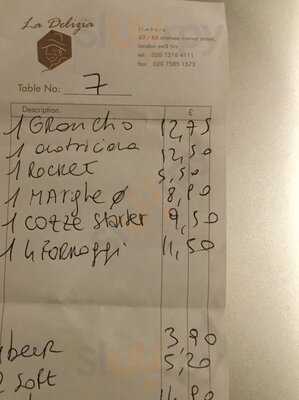 La Delizia
Limbara
63 / 65 chelsea manor street,
london sw3 5rz
tel: 020 7376 4111
fax: 020 7585 1573
Table No: 7
Description £
1 GRANCHO 12,75
1 matriciana 12,50
1 ROCKET 5,50
1 MARghe Ø 8,90
1 COZZE Starter 9,50
1 4 FORMAGGI 11,50
3,90
beer 5,20
2 Soft